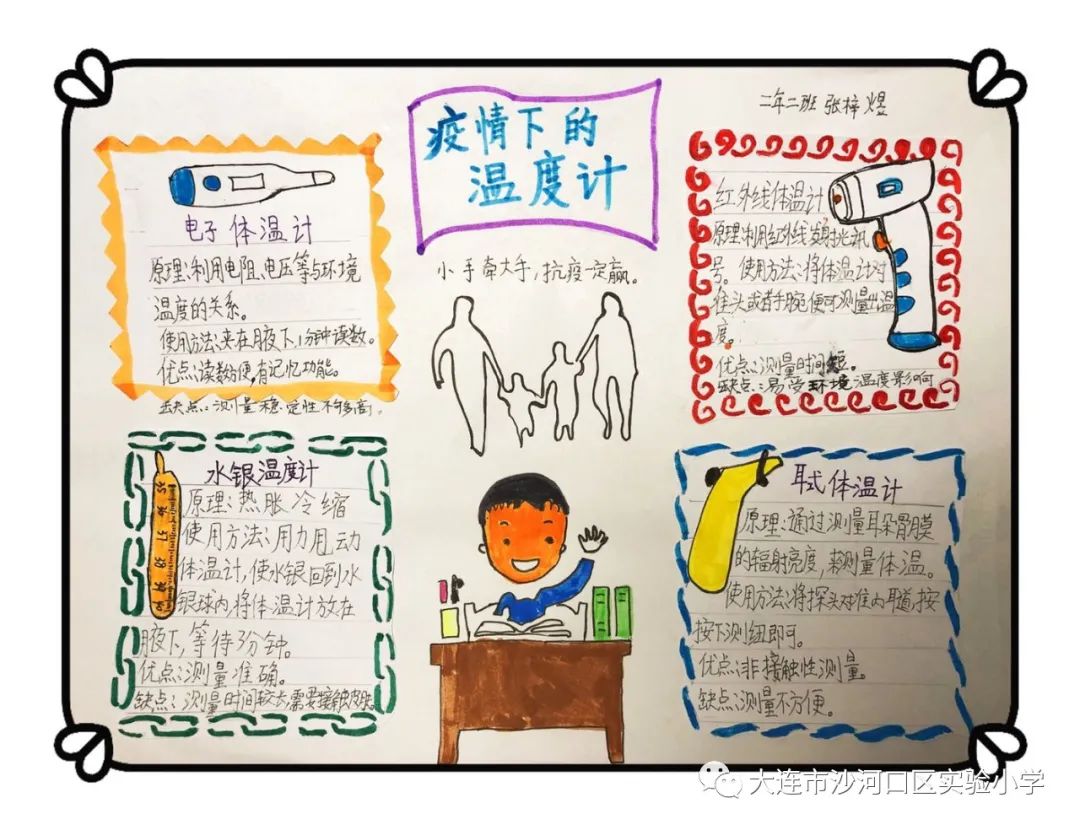 二年二班 张梓煜
疫情下的
温度计
小手牵大手,抗疫一定赢。
电子体温计
原理:利用电阻、电压等与环境
温度的关系。
使用方法:夹在腋下,1分钟读数。
优点:读数方便,有记忆功能。
缺点:测量稳定性不够高。
红外线体温计
原理:利用红外线发射扰讯
号。使用方法:将体温计对
准头或者手腕便可测量出温
度。
优点:测量时间短。
缺点:易受环境温度影响
水银温度计
原理:热胀冷缩
使用方法:用力甩动
体温计,使水银回到水
银球内,将体温计放在
腋下,等待3分钟。
优点:测量准确。
缺点:测量时间较长,需要接触皮肤。
35 36 37 38 39 40
耳式体温计
原理:通过测量耳朵骨膜
的辐射亮度,来测量体温。
使用方法:将探头对准内耳道,按
按下测纽即可。
优点:非接触性测量。
缺点:测量不方便。
大连市沙河口区实验小学